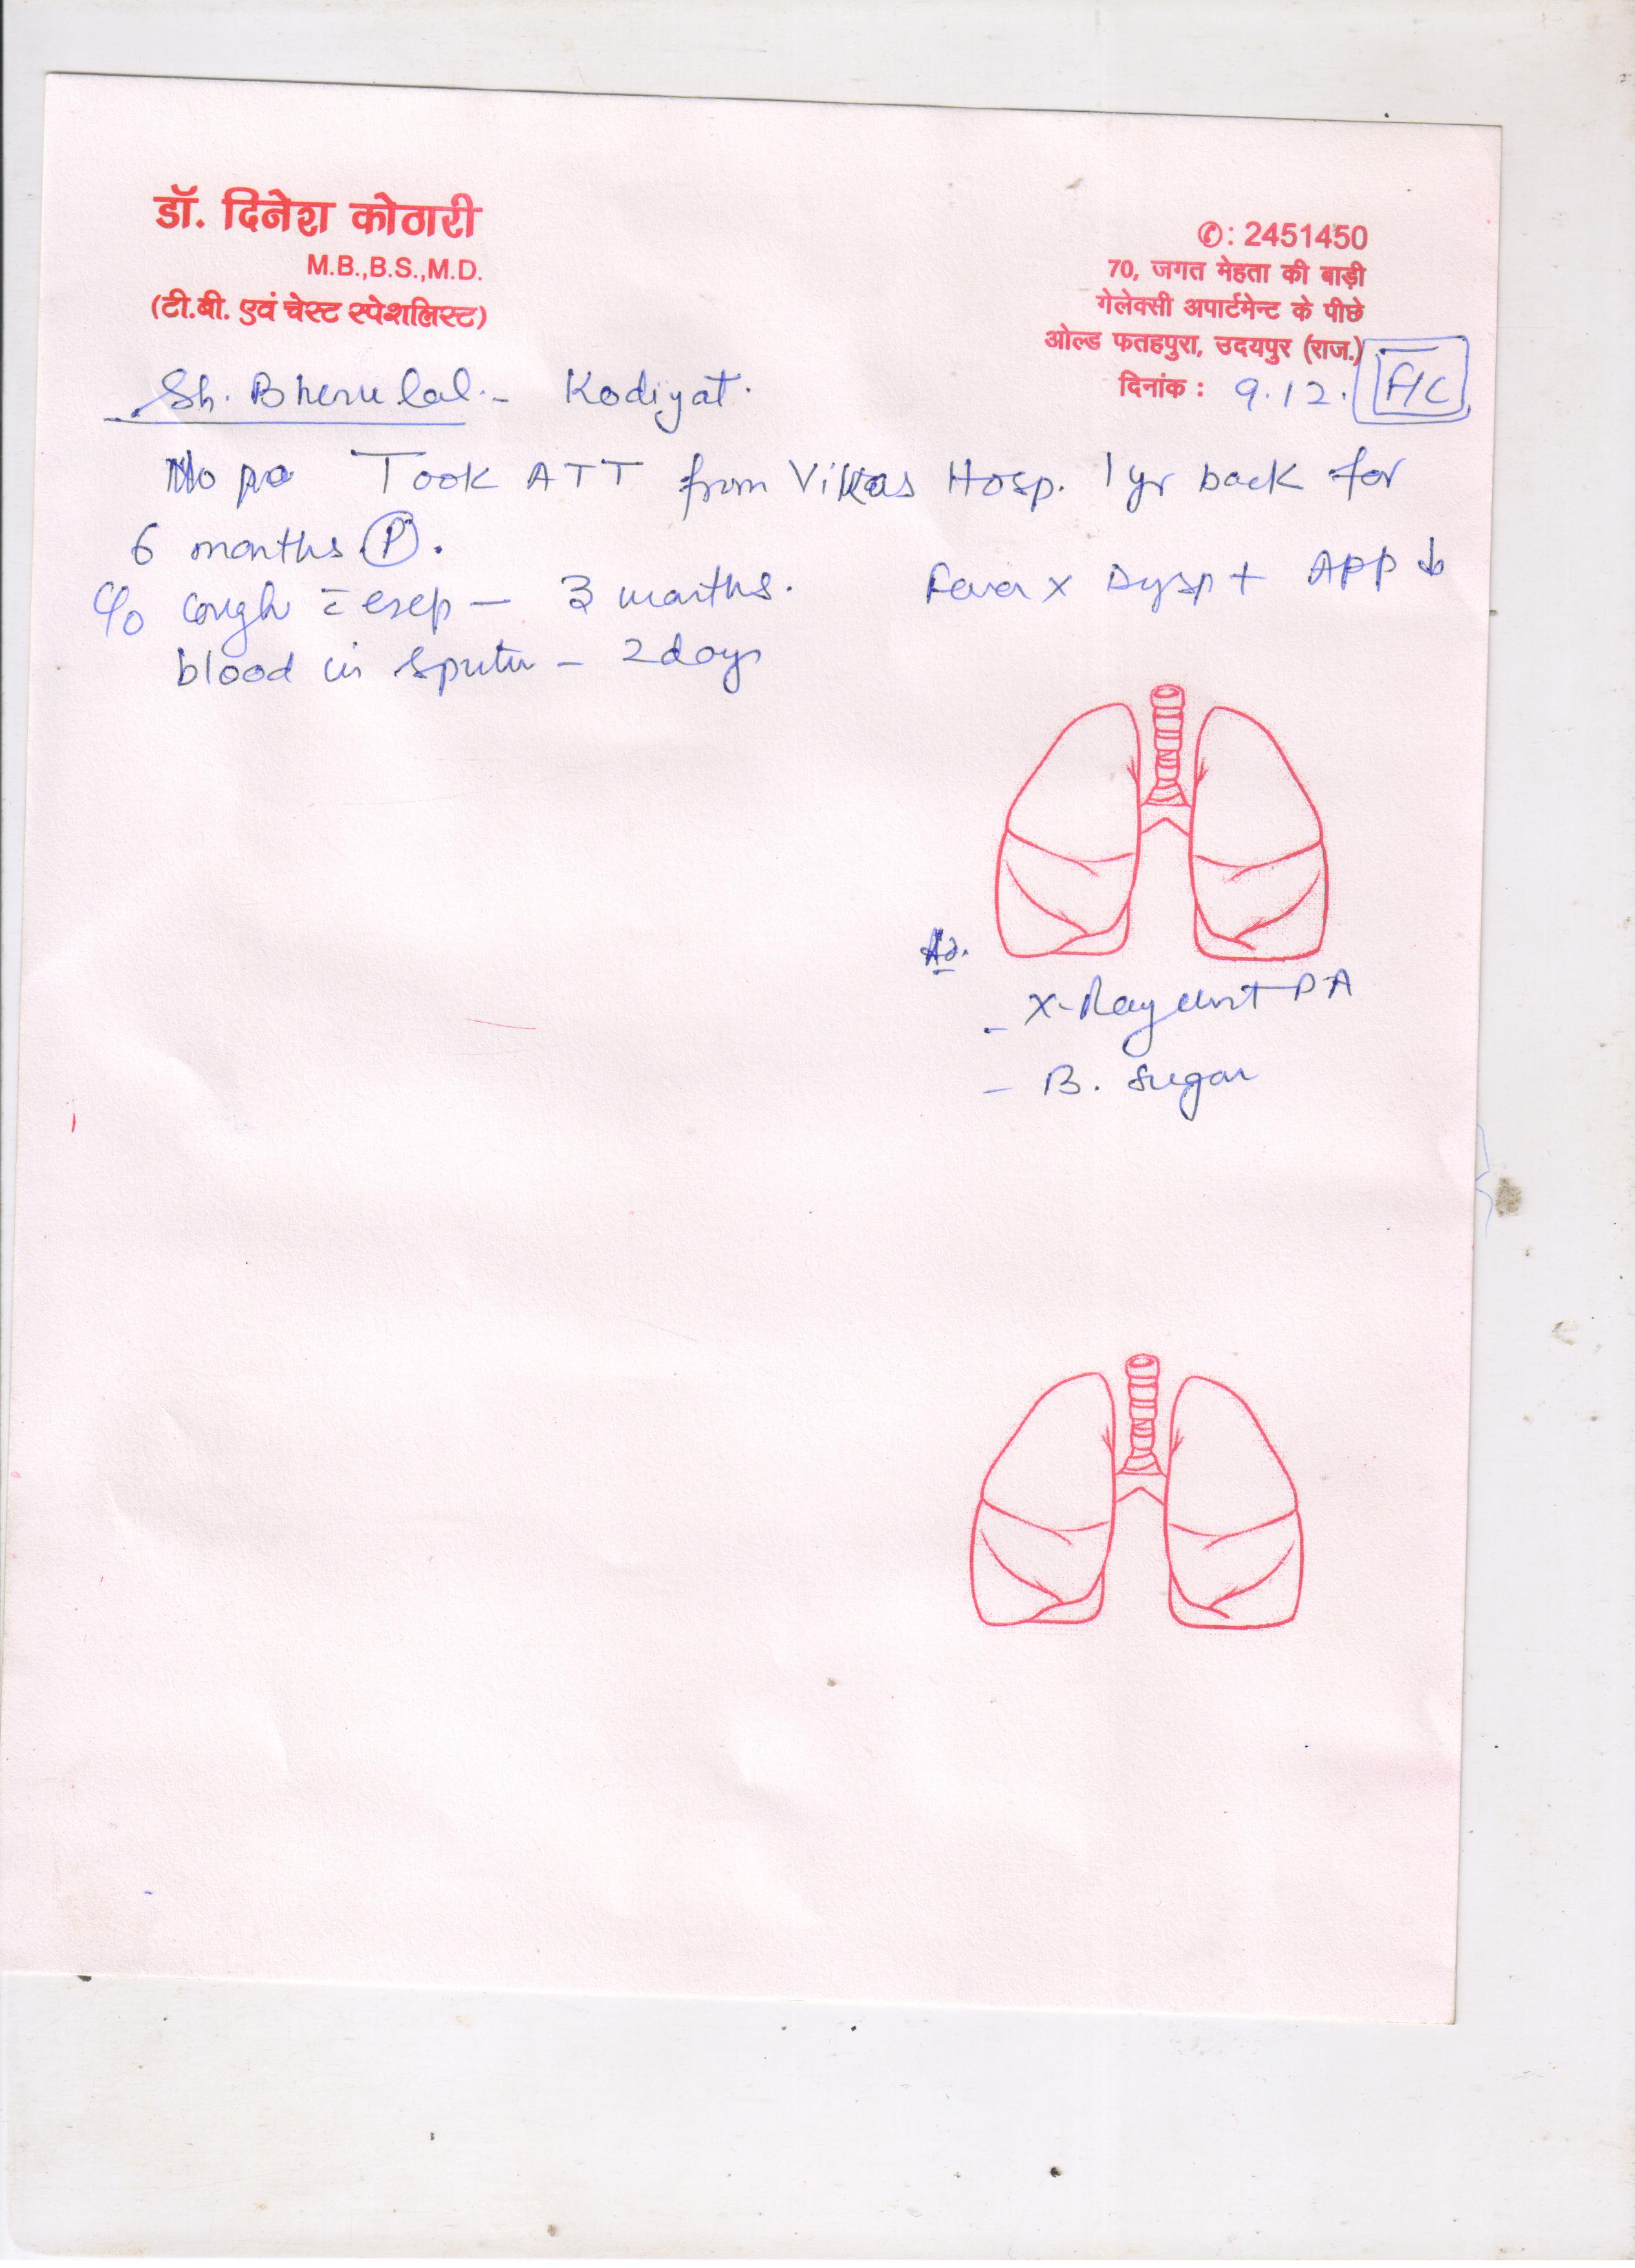 डॉ. दिनेश कोठारी
M.B.,B.S.,M.D.
(टी.बी. एवं चेस्ट स्पेशलिस्ट)
✆: 2451450
70, जगत मेहता की बाड़ी
गेलेक्सी अपार्टमेन्ट के पीछे
ओल्ड फतहपुरा, उदयपुर (राज.)
दिनांक : 9.12. F/C
Sh. Bherulal - Kodiyat.
No Took ATT from Vikas Hosp. 1 yr back for
6 months (P).
C/o cough c̄ exp — 3 months. Fever x Dysp + App ↓
blood in sputum - 2 days
Ad.
- X-Ray chest PA
- B. Sugar